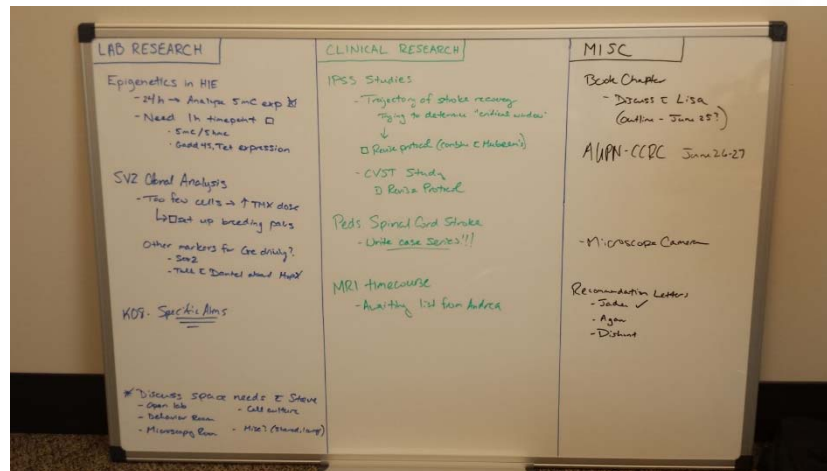 LAB RESEARCH
Epigenetics in HIE
- 24h → Analyze 5mC exp ☒
- Need 1h timepoint ☐
- 5mc/5hmc
- Gadd45, Tet expression
SVZ Clonal Analysis
- Too few cells → ↑ TMX dose
↳ ☐ set up breeding pairs
Other markers for Cre driving?
- Sox2
- Talk c̄ Daniel about
K08 - Specific Aims
* Discuss space needs c̄ Steve
- Open lab
- Cell culture
- Behavior Room
- Microscopy Room
- Mice?
CLINICAL RESEARCH
IPSS Studies
- Trajectory of stroke recovery
Trying to determine "critical window"
↓
☐ Revise protocol (combine c̄ Mubeen's)
- CVST Study
☐ Revise Protocol
Peds Spinal Cord Stroke
- Write case series!!!
MRI timecourse
- Awaiting list from Andrea
MISC
Book Chapter
- Discuss c̄ Lisa
(outline - June 25?)
June 26-27
- Microscope Camera
Recommendation Letters
- Jaden ✓